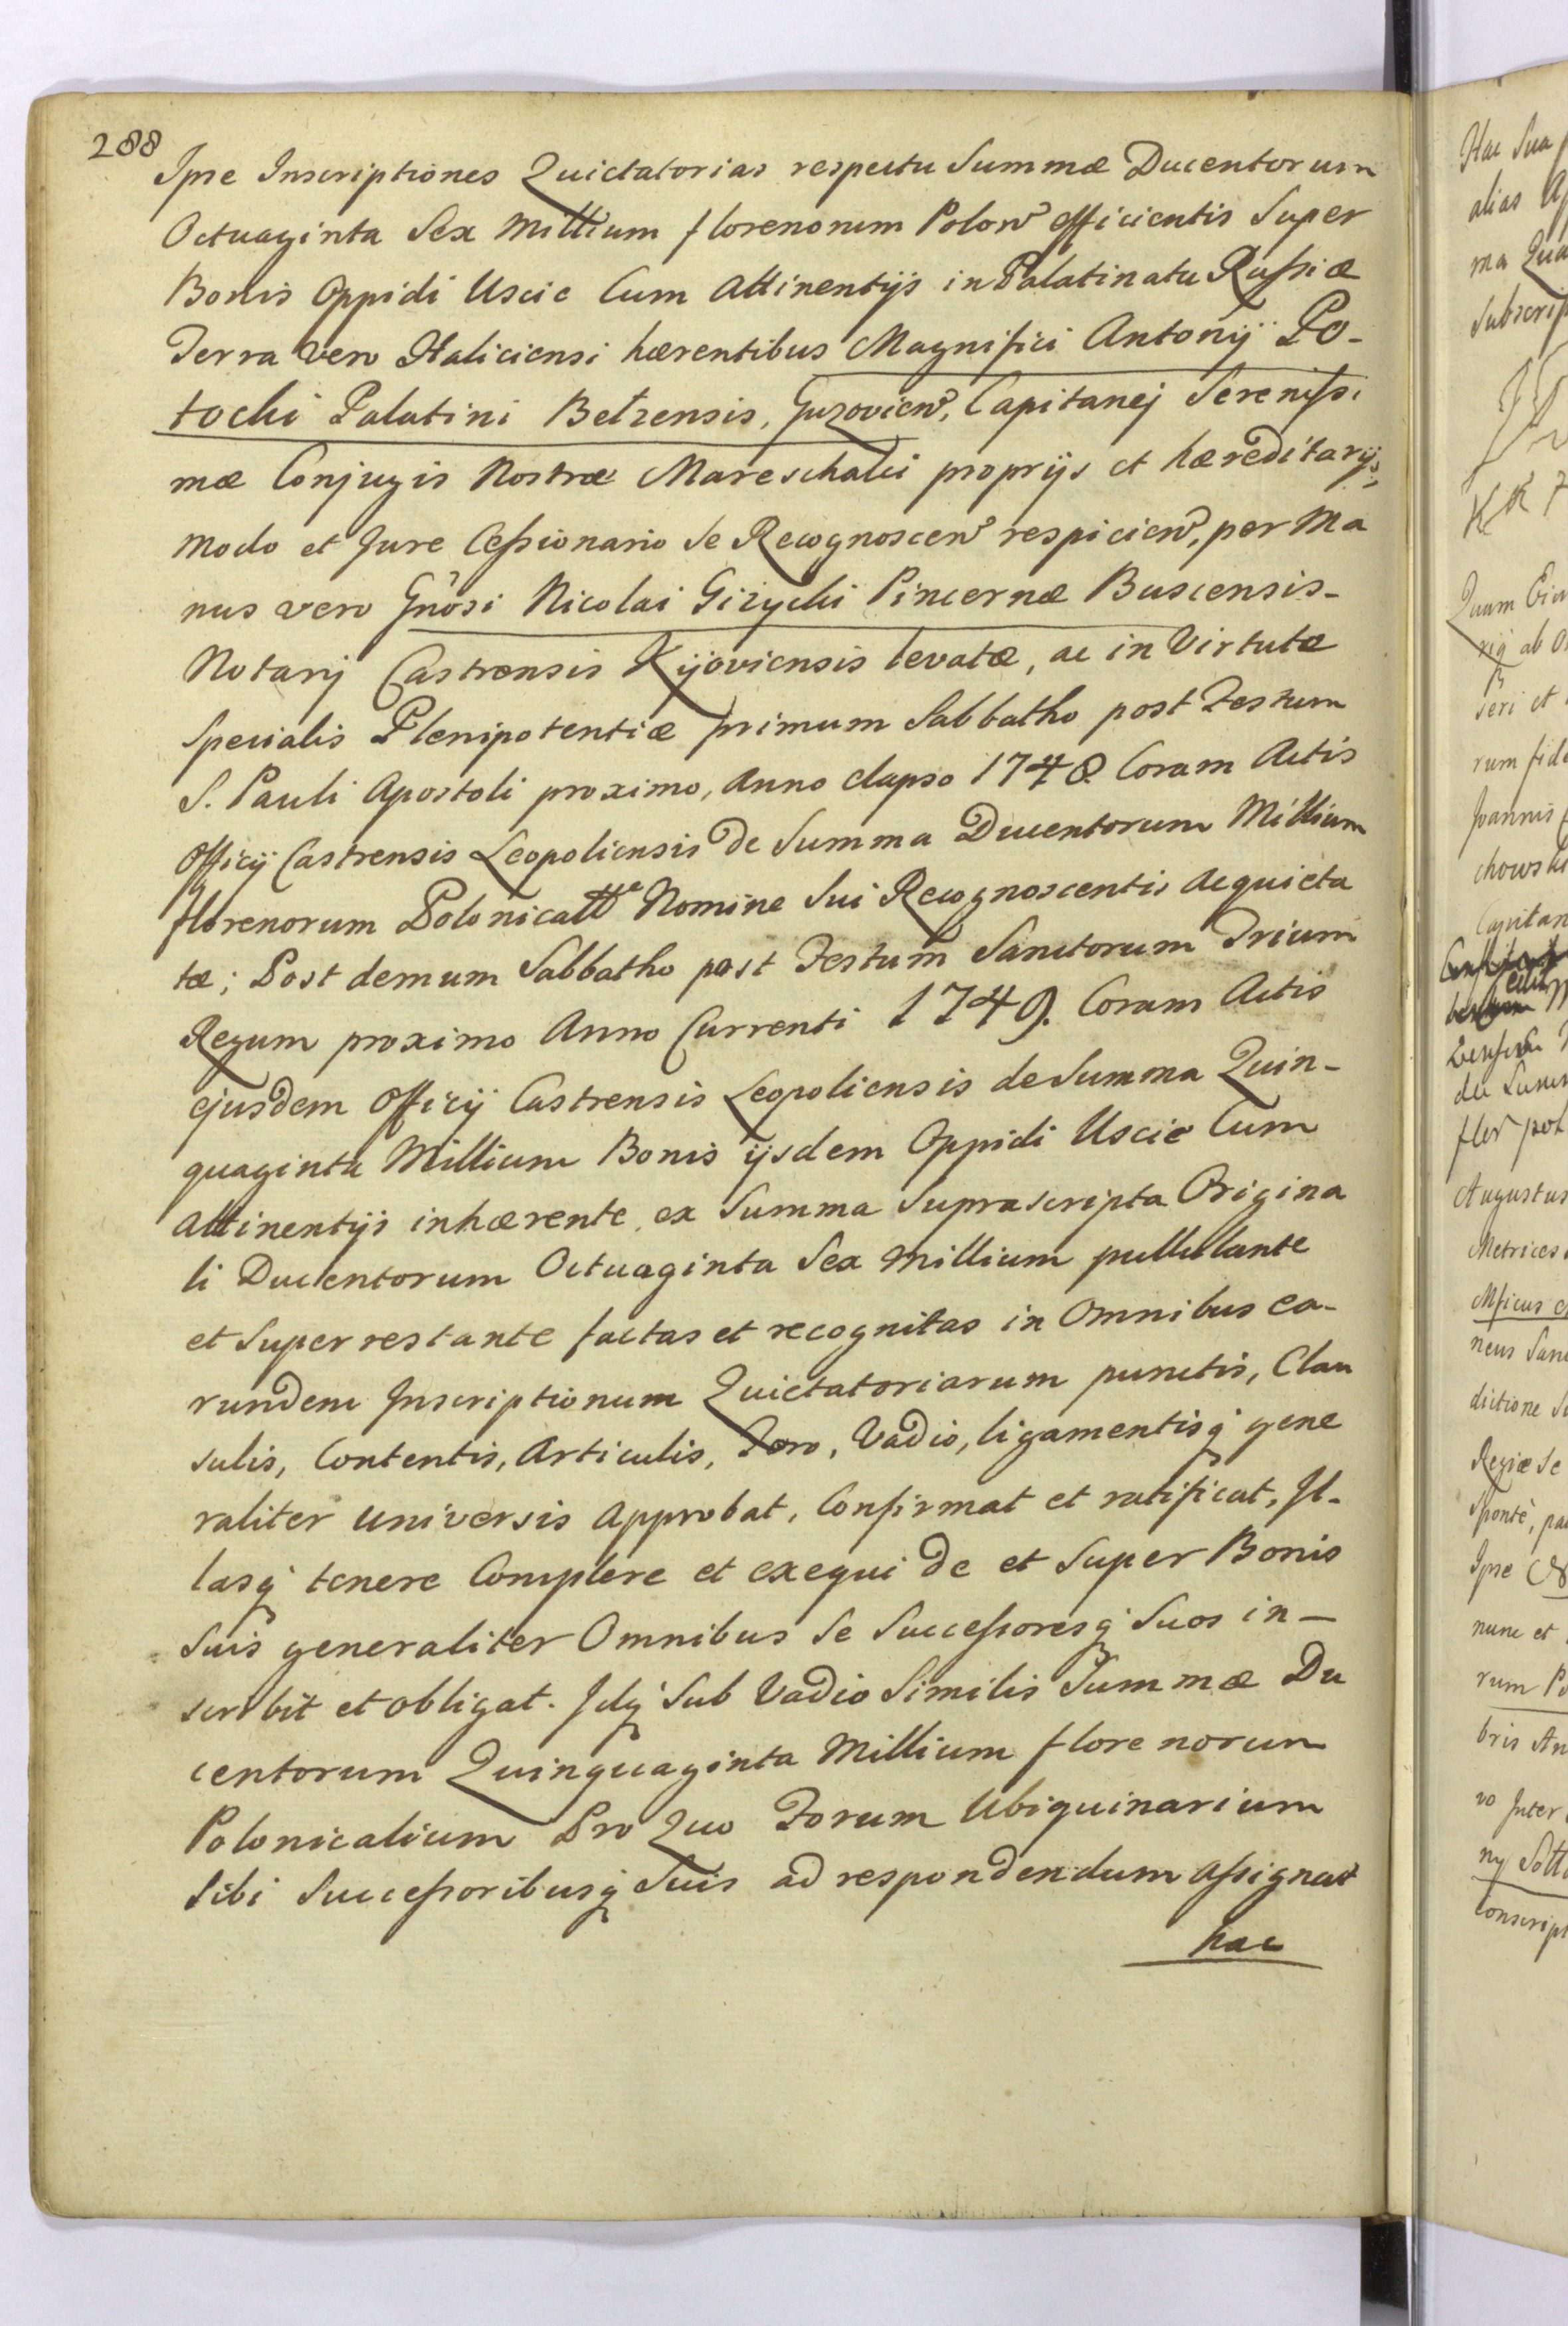 288
Ipse Inscriptiones Quictatorias respectu Summæ Ducentorum
Octuaginta Sex Millium florenorum Polon͠ efficientis Super
Bonis Oppidi Uscie Cum Attinentijs in Palatinatu Russiæ
Terra vero Haliciensi hærentibus Magnifici Antonij Po-
tocki Palatini Belzensis, Guzovien͠, Capitanej Serenissi
mæ Conjugis Nostræ Mareschalci proprijs et hæreditarijs,
modo et Jure Cessionario se Recognoscen͠ respicien͠, per Ma
nus vero Gn̄osi Nicolai Giżycki Pincernæ Buscensis-
Notarij Castrensis Kijoviensis levatæ, ac in Virtute
Specialis Plenipotentiæ primum Sabbatho post Festum
S. Pauli Apostoli proximo, Anno elapso 1748 Coram Actis
Officij Castrensis Leopoliensis de Summa Ducentorum Millium
florenorum Polonicallᵉ Nomine Sui Recognoscentis acquieta
tæ; Post demum Sabbatho post Festum Sanctorum Trium
Regum proximo Anno Currenti 1749. Coram Actis
ejusdem Officij Castrensis Leopoliensis de Summa Quin-
quaginta Millium Bonis ijsdem Oppidi Uscie Cum
attinentijs inhærente, ex Summa Suprascripta Origina
li Ducentorum Octuaginta Sex millium pullulante
et Super restante factas et recognitas in Omnibus ea-
rundem Inscriptionum Quictatoriarum punctis, Clau
sulis, Contentis, Articulis, Foro, Vadio, ligamentisq́ gene
raliter universis Approbat, Confirmat et ratificat, Il-
lasq́ tenere Complere et exequi de et Super Bonis
Suis generaliter Omnibus Se Successoresq́ Suos in-
scribit et obligat. Idq́ Sub Vadio Similis Summæ Du
centorum Quinquaginta Millium florenorum
Polonicalium Pro Quo Forum Ubiquinarium
Sibi Successoribusq́ Suis ad respondendum assignat
hac
Hac Sua
alias
ma
Subscrip
Quam
ab
seri et
rum fide
Joannis
chowski
Capitan
flor pol
Augustus
Metrices
Mficus
neus San
dictione
Regiæ Se
Sponte, pa
Ipse
nunc et
rum Po
bris An
vo Inter
conscrip